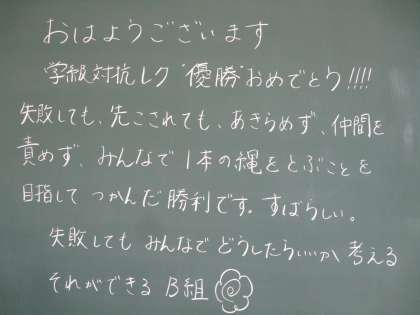 おはようございます
学級対抗レク "優勝" おめでとう!!!!
失敗しても、先こされても、あきらめず、仲間を
責めず、みんなで1本の縄をとぶことを
目指して つかんだ勝利です。すばらしい。
失敗しても みんなで どうしたらいいか 考える
それができる B組